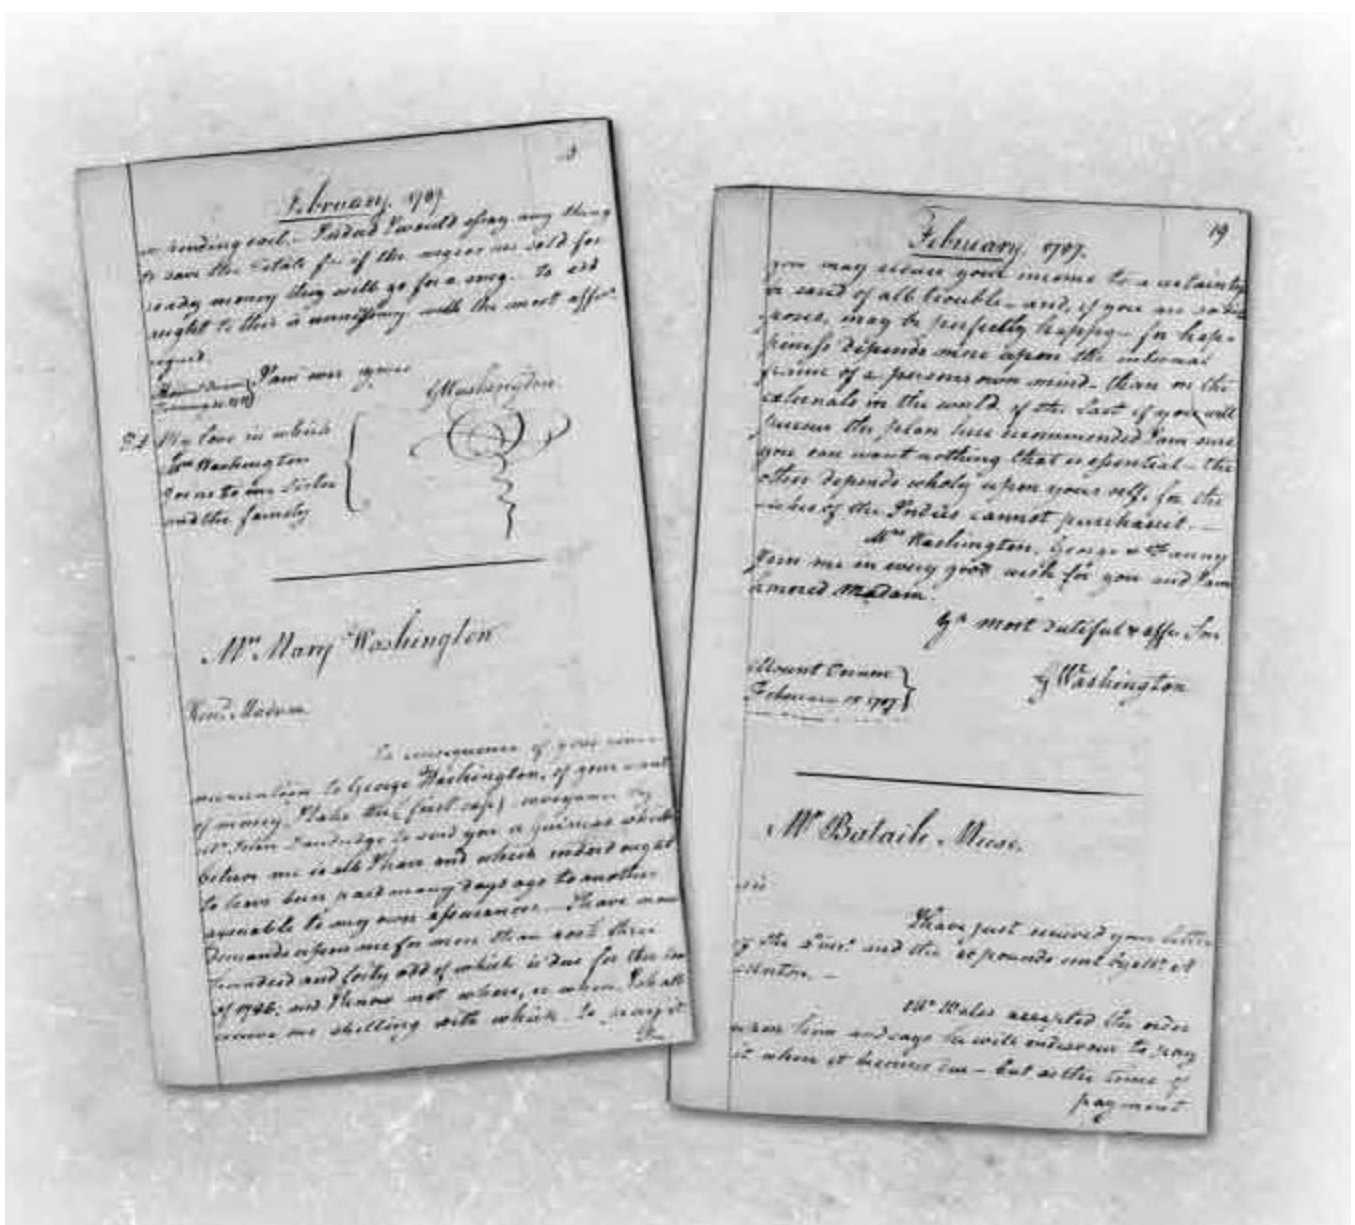 February. 1787
unending evil. Indeed I would essay any thing
to save the Estate for if the negros are sold for
ready money they will go for a song. To add
ought to this is unnecessary with the most affec.
regard.
I am ever yours
GWashington.
P.S. My love in which
Mrs Washington
joins to my Sister
and the family
Mrs Mary Washington
Hond. Madam
In consequence of your
communication to George Washington, of your want
of money, I take the (first safe) conveyance by
Mr. John Dandridge to send you 15 guineas which
believe me is all I have and which indeed ought
to have been paid many days ago to another
agreeable to my own assurances. I have now
demands upon me for more than 500£ three
hundred and forty odd of which is due for the tax
of 1786; and I know not where, or when I shall
receive one shilling with which to pay it
In
February. 1787. 19
you may reduce your income to a certainty
be eased of all trouble—and, if you are so dis-
posed, may be perfectly happy—for hap-
piness depends more upon the internal
frame of a persons own mind—than on the
externals in the world. of the last if you will
pursue the plan here recommended I am sure
you can want nothing that is essential—the
other depends wholy upon your self, for the
riches of the Indies cannot purchase it.—
Mrs Washington, George & Fanny
Join me in every good wish for you and I am
honored Madam.
Yr most dutiful & affe. Son
Mount Vernon
February 15 1787
GWashington
Mr Bataile Muse.
Sir
I have just received your letter
of the and the pounds sent by Mr. A
Mr Wales accepted the order
upon him and says he will endeavour to pay
it when it becomes due—but as the time of
payment